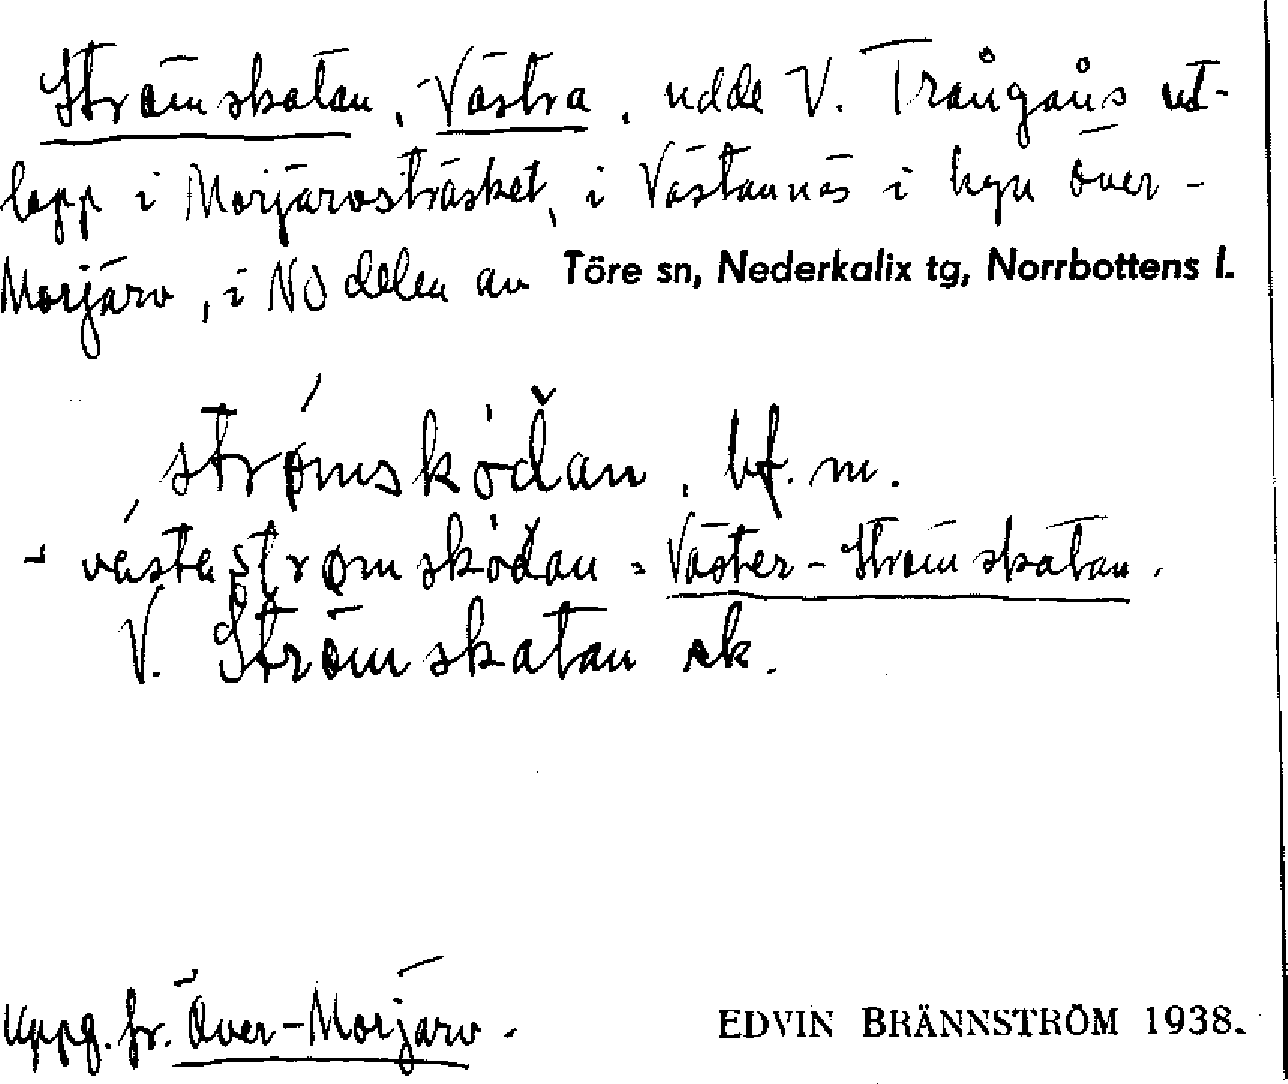 Strömskatan, Västra, udde V. Trångåns ut-
lopp i Morjärvsträsket, i Västannäs i byn Över-
Morjärv, i NO delen av Töre sn, Nederkalix tg, Norrbottens l.
strø̀mskȯd̆an, bf. m.
- västastrømskȯdan = Väster-Strömskatan.
V. Strömskatan ek.
Uppg. fr. Över-Morjärv.
EDVIN BRÄNNSTRÖM 1938.